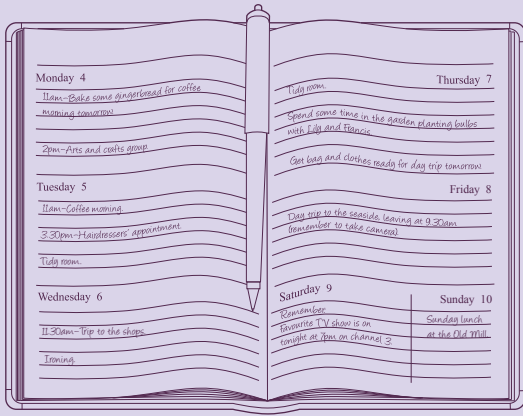 Monday 4
11am–Bake some gingerbread for coffee
morning tomorrow
2pm–Arts and crafts group.
Tuesday 5
11am–Coffee morning.
3.30pm–Hairdressers' appointment.
Tidy room.
Wednesday 6
11.30am–Trip to the shops.
Ironing.
Thursday 7
Tidy room.
Spend some time in the garden planting bulbs
with Lily and Francis.
Get bag and clothes ready for day trip tomorrow
Friday 8
Day trip to the seaside, leaving at 9.30am
(remember to take camera).
Saturday 9
Remember
Favourite TV show is on
tonight at 7pm on channel 3.
Sunday 10
Sunday lunch
at the Old Mill.